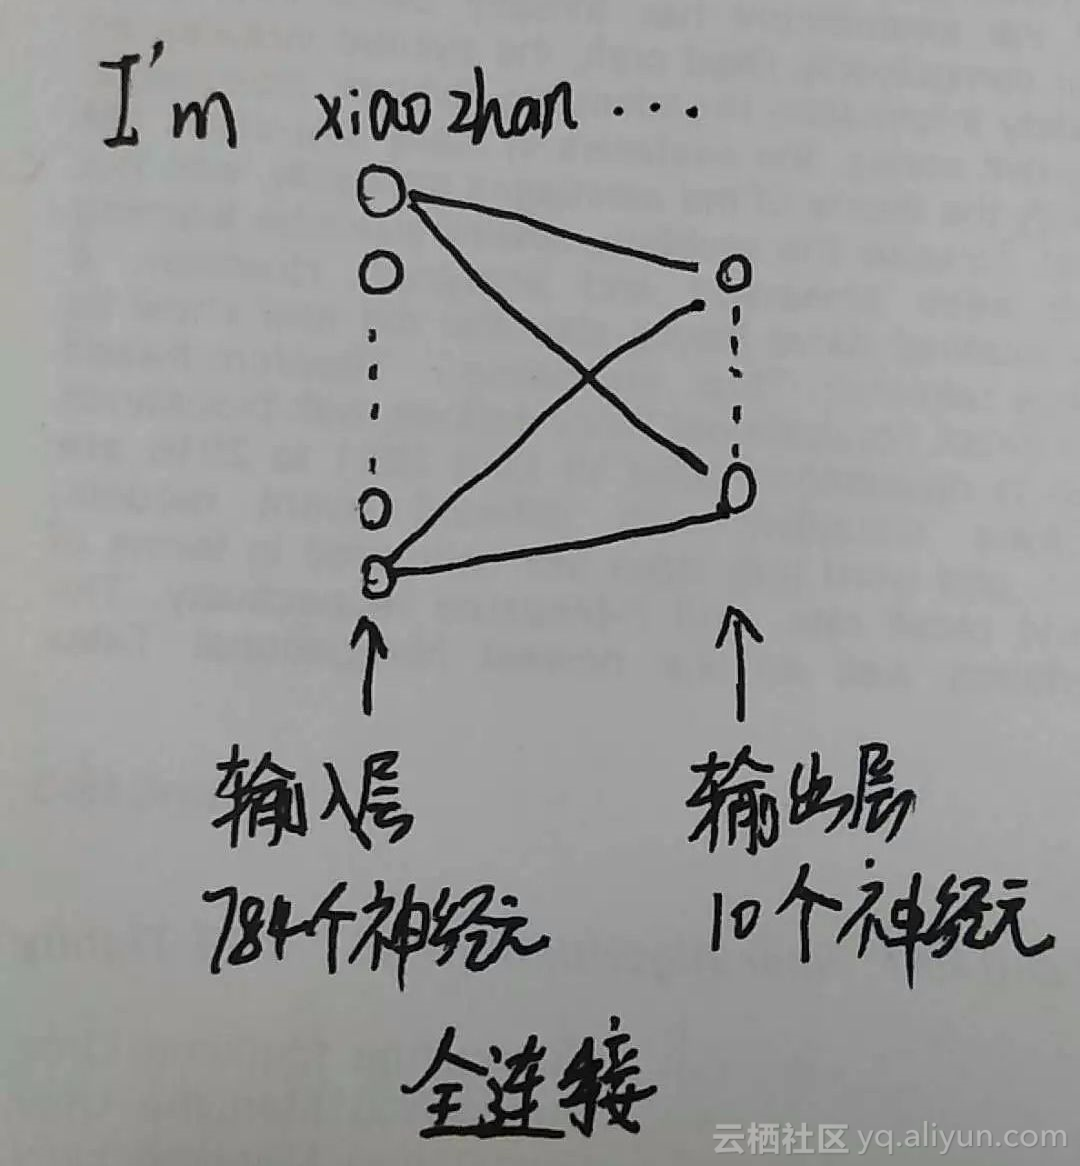 I'm xiaozhan...
输入层 输出层
784个神经元 10个神经元
全连接
云栖社区 yq.aliyun.com